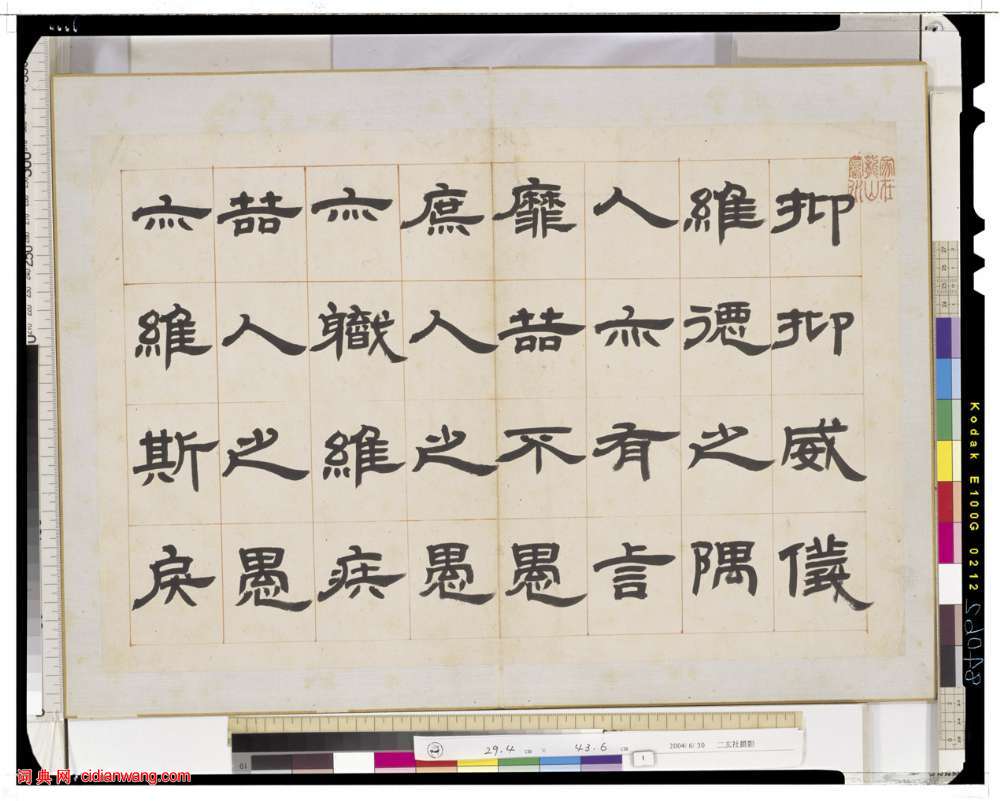 抑抑威儀
維德之隅
人亦有言
靡喆不愚
庶人之愚
亦軄維疾
喆人之愚
亦維斯戾
Kodak E100G 0212
29.4 cm × 43.6 cm
2004/6/30 二玄社攝影
1
词典网 cidianwang.com